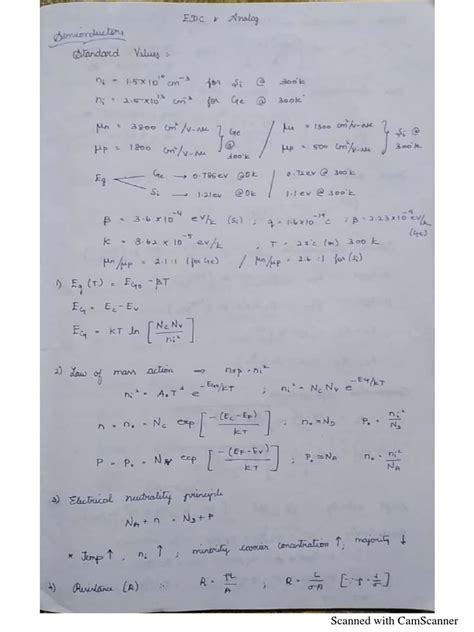 EDC & Analog
Semiconductors
Standard Values :
ni = 1.5×10¹⁰ cm⁻³ for Si @ 300k
ni = 2.5×10¹³ cm⁻³ for Ge @ 300k
μn = 3800 cm²/v-sec } Ge @ 300k / μn = 1300 cm²/v-sec } Si @ 300k
μp = 1800 cm²/v-sec / μp = 500 cm²/v-sec
Eg Ge → 0.785ev @0k / 0.72ev @ 300k
Si → 1.21ev @0k / 1.1ev @ 300k
β = 3.6×10⁻⁴ ev/k (Si) ; q = 1.6×10⁻¹⁹ c ; β = 2.23×10⁻⁴ ev/k (Ge)
K = 8.62×10⁻⁵ ev/k ; T = 27°c (or) 300k
μn/μp = 2.1:1 (for Ge) / μn/μp = 2.6:1 for (Si)
1) Eg(T) = EG0 - βT
EG = Ec - Ev
EG = KT ln [NcNv/ni²]
2) Law of mass action → n×p = ni²
ni² = A₀T³ e^(-EG0/KT) ; ni² = NcNv e^(-EG/KT)
n = n₀ = Nc exp[-(Ec-EF)/KT] ; n₀ = ND P₀ = ni²/ND
P = P₀ = Nv exp[-(EF-Ev)/KT] ; P₀ = NA n₀ = ni²/NA
3) Electrical neutrality principle
NA + n = ND + P
* Temp ↑, ni ↑ ; minority carrier concentration ↑, majority ↓
4) Resistance (R) : R = ρL/A ; R = L/σA [∵ρ = 1/σ]
Scanned with CamScanner